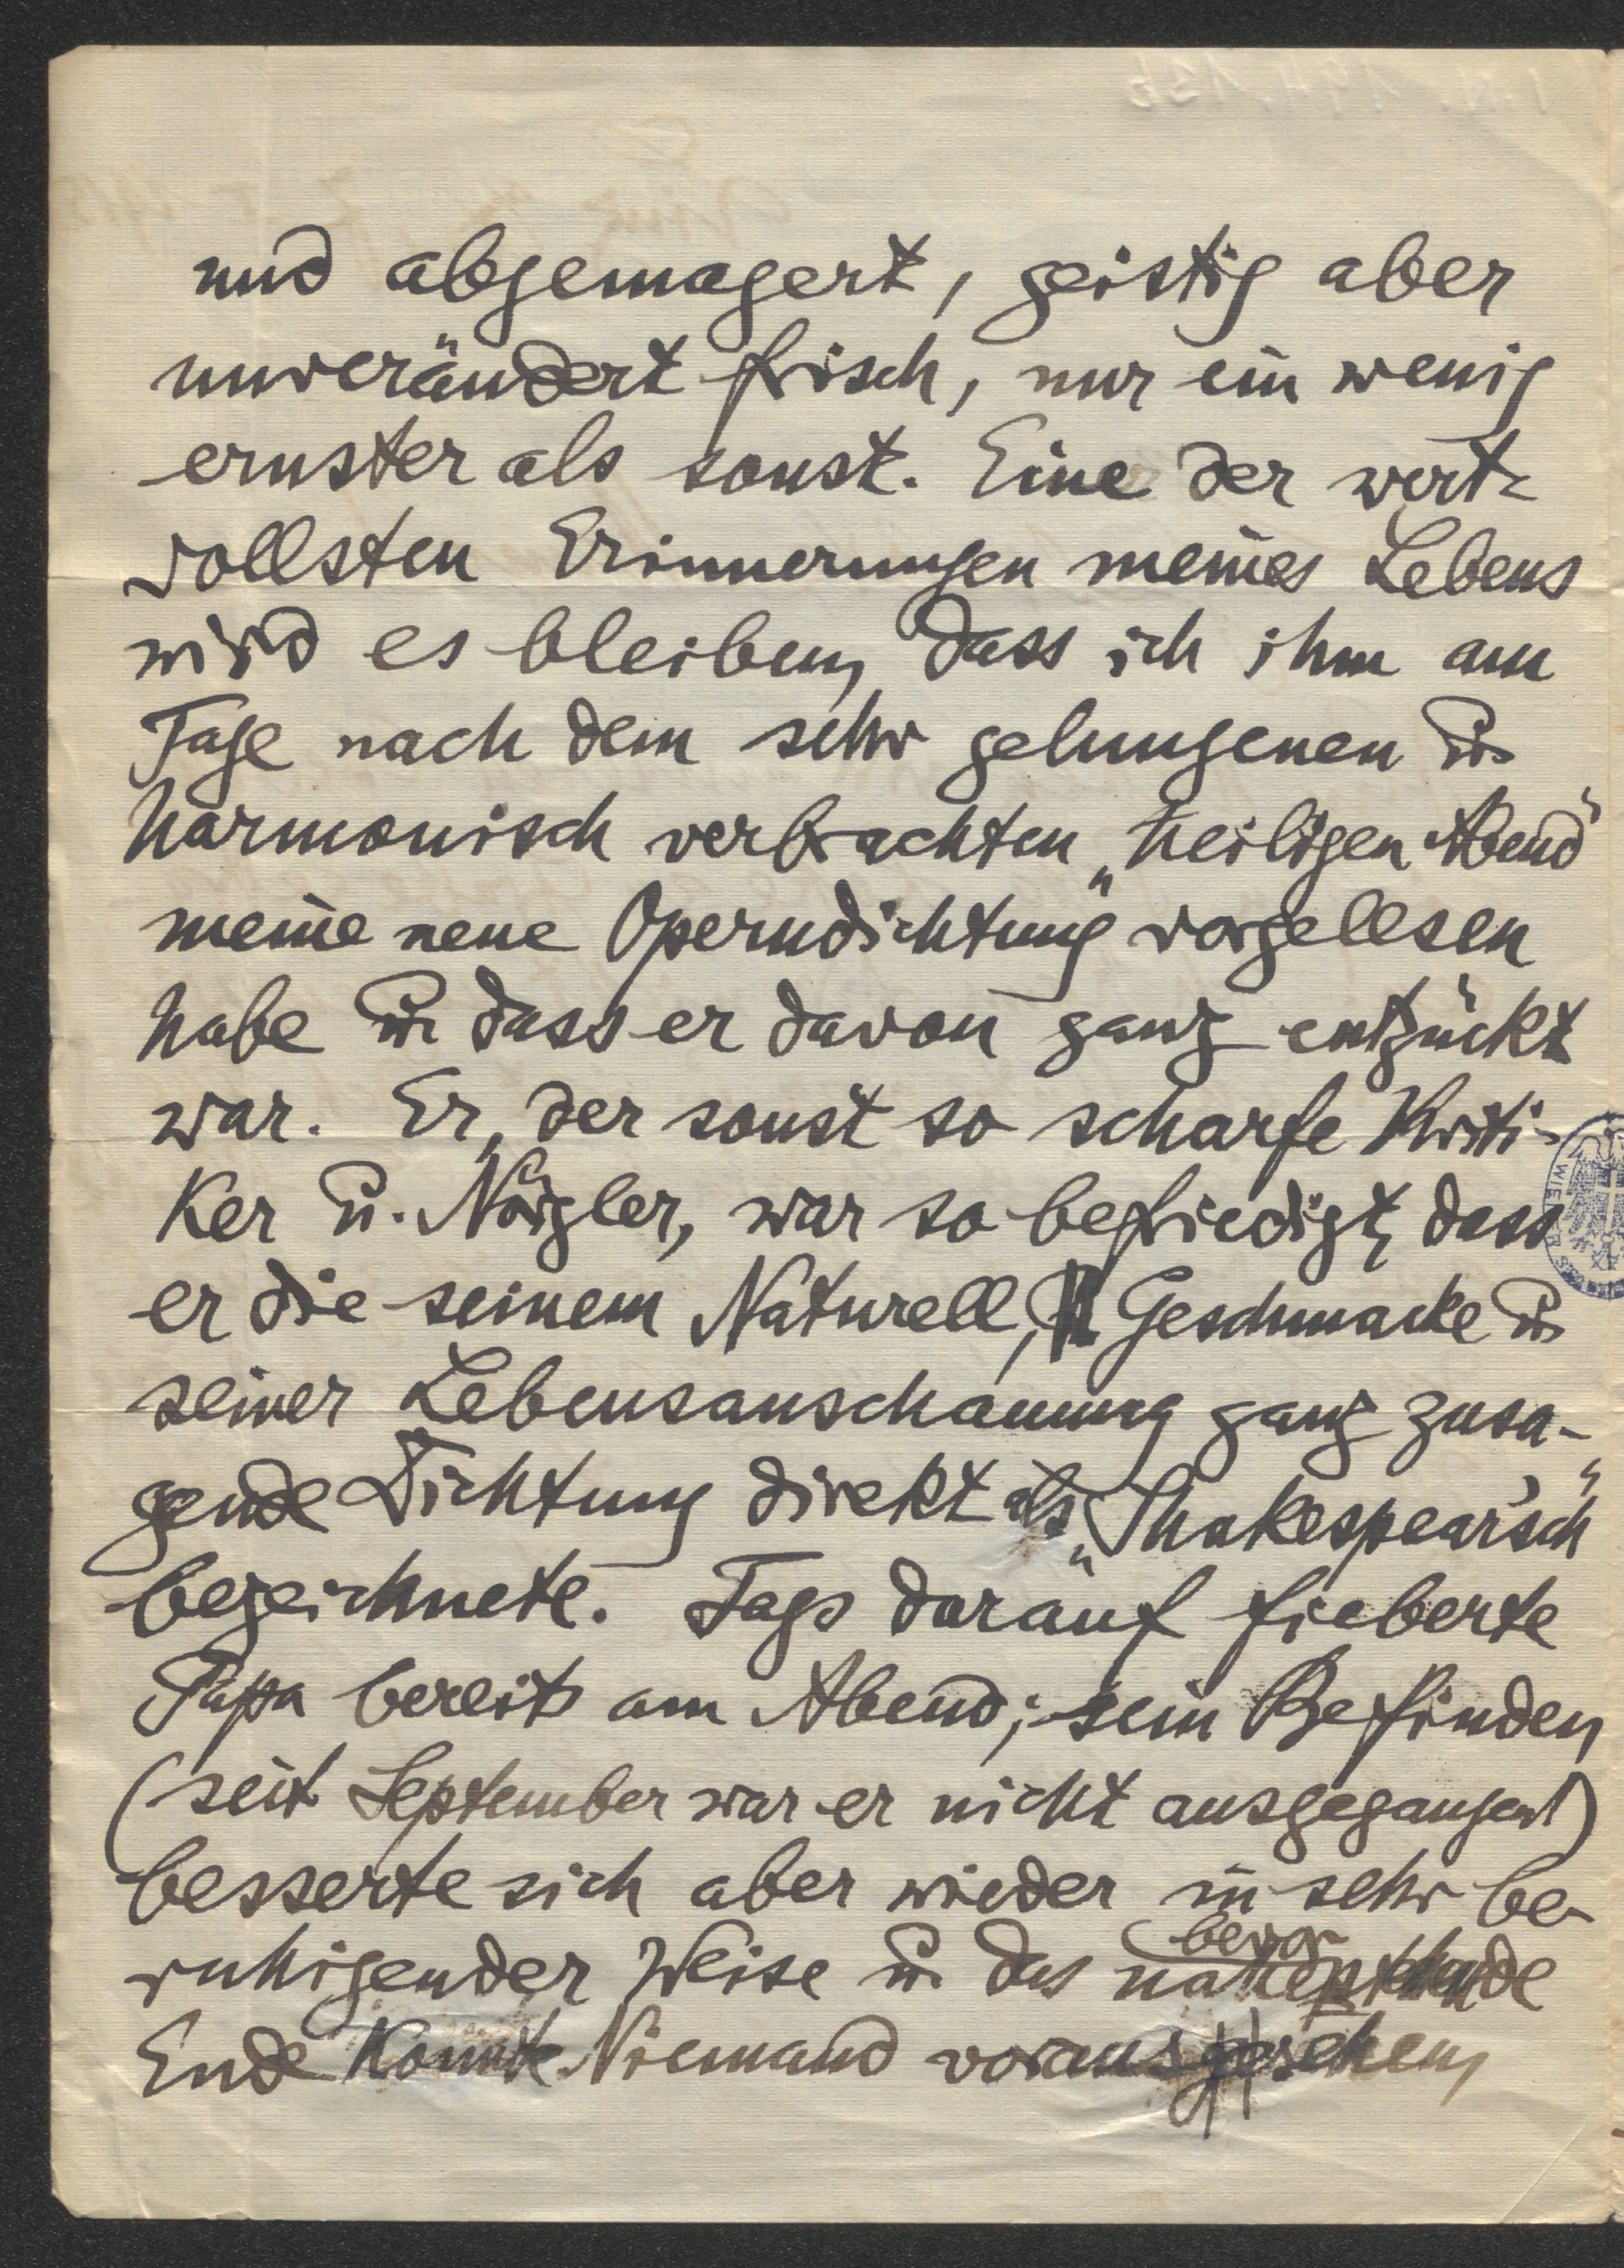 und abgemagert, geistig aber
unverändert frisch, nur ein wenig
ernster als sonst. Eine der wert-
vollsten Erinnerungen meines Lebens
wird es bleiben, dass ich ihm am
Tage nach dem sehr gelungenen u.
harmonisch verbrachten „heiligen Abend“
meine neue Operndichtung vorgelesen
habe u. dass er davon ganz entzückt
war. Er, der sonst so scharfe Kriti-
ker u. Nörgler, war so befriedigt, dass
er die seinem Naturell, Geschmacke u.
seiner Lebensanschauung ganz zusa-
gende Dichtung direkt als „Shakespear'sch“
bezeichnete. Tags darauf fieberte
Papa bereits am Abend; sein Befinden
(seit September war er nicht ausgegangen)
besserte sich aber wieder in sehr be-
ruhigender Weise u. das nahe bevorstehende
Ende konnte Niemand voraussehen,